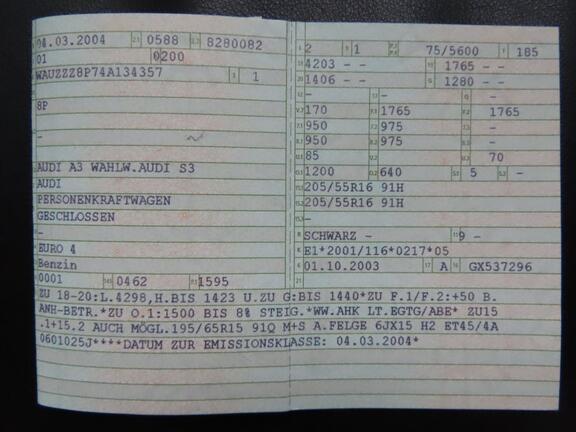 04.03.2004 0588 8280082
01 0200
WAUZZZ8P74A134357 1
8P
-
AUDI A3 WAHLW.AUDI S3
AUDI
PERSONENKRAFTWAGEN
GESCHLOSSEN
-
EURO 4
Benzin
0001 0462 1595
2 1 75/5600 185
4203 - - 1765 - -
1406 - - 1280 - -
- - -
170 1765 1765
950 975 -
950 975 -
85 - 70
1200 640 5 -
205/55R16 91H
205/55R16 91H
-
SCHWARZ - 9 -
E1*2001/116*0217*05
01.10.2003 A GX537296
ZU 18-20:L.4298,H.BIS 1423 U.ZU G:BIS 1440*ZU F.1/F.2:+50 B.
ANH-BETR.*ZU O.1:1500 BIS 8% STEIG.*WW.AHK LT.EGTG/ABE* ZU15
.1+15.2 AUCH MÖGL.195/65R15 91Q M+S A.FELGE 6JX15 H2 ET45/4A
0601025J****DATUM ZUR EMISSIONSKLASSE: 04.03.2004*